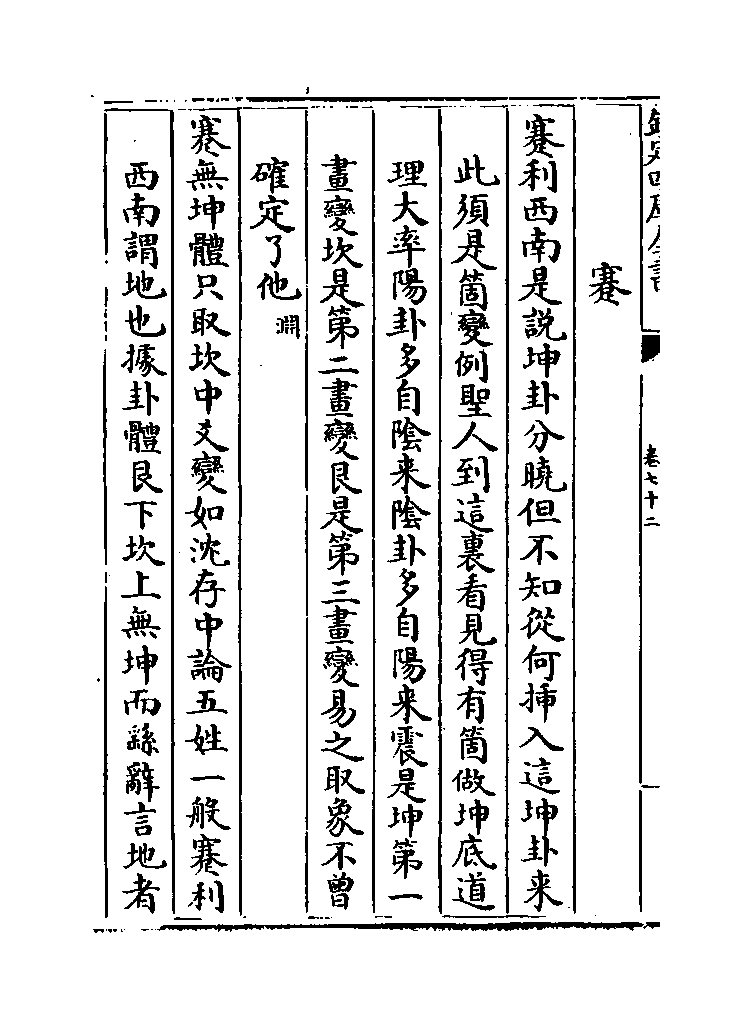 欽定四庫全書
卷七十二
蹇
蹇利西南是說坤卦分曉但不知從何揷入這坤卦来
此須是箇變例聖人到這裏看見得有箇做坤底道
理大率陽卦多自陰来陰卦多自陽来震是坤第一
畫變坎是第二畫變艮是第三畫變易之取象不曾
確定了他淵
蹇無坤體只取坎中爻變如沈存中論五姓一般蹇利
西南謂地也據卦體艮下坎上無坤而繇辭言地者